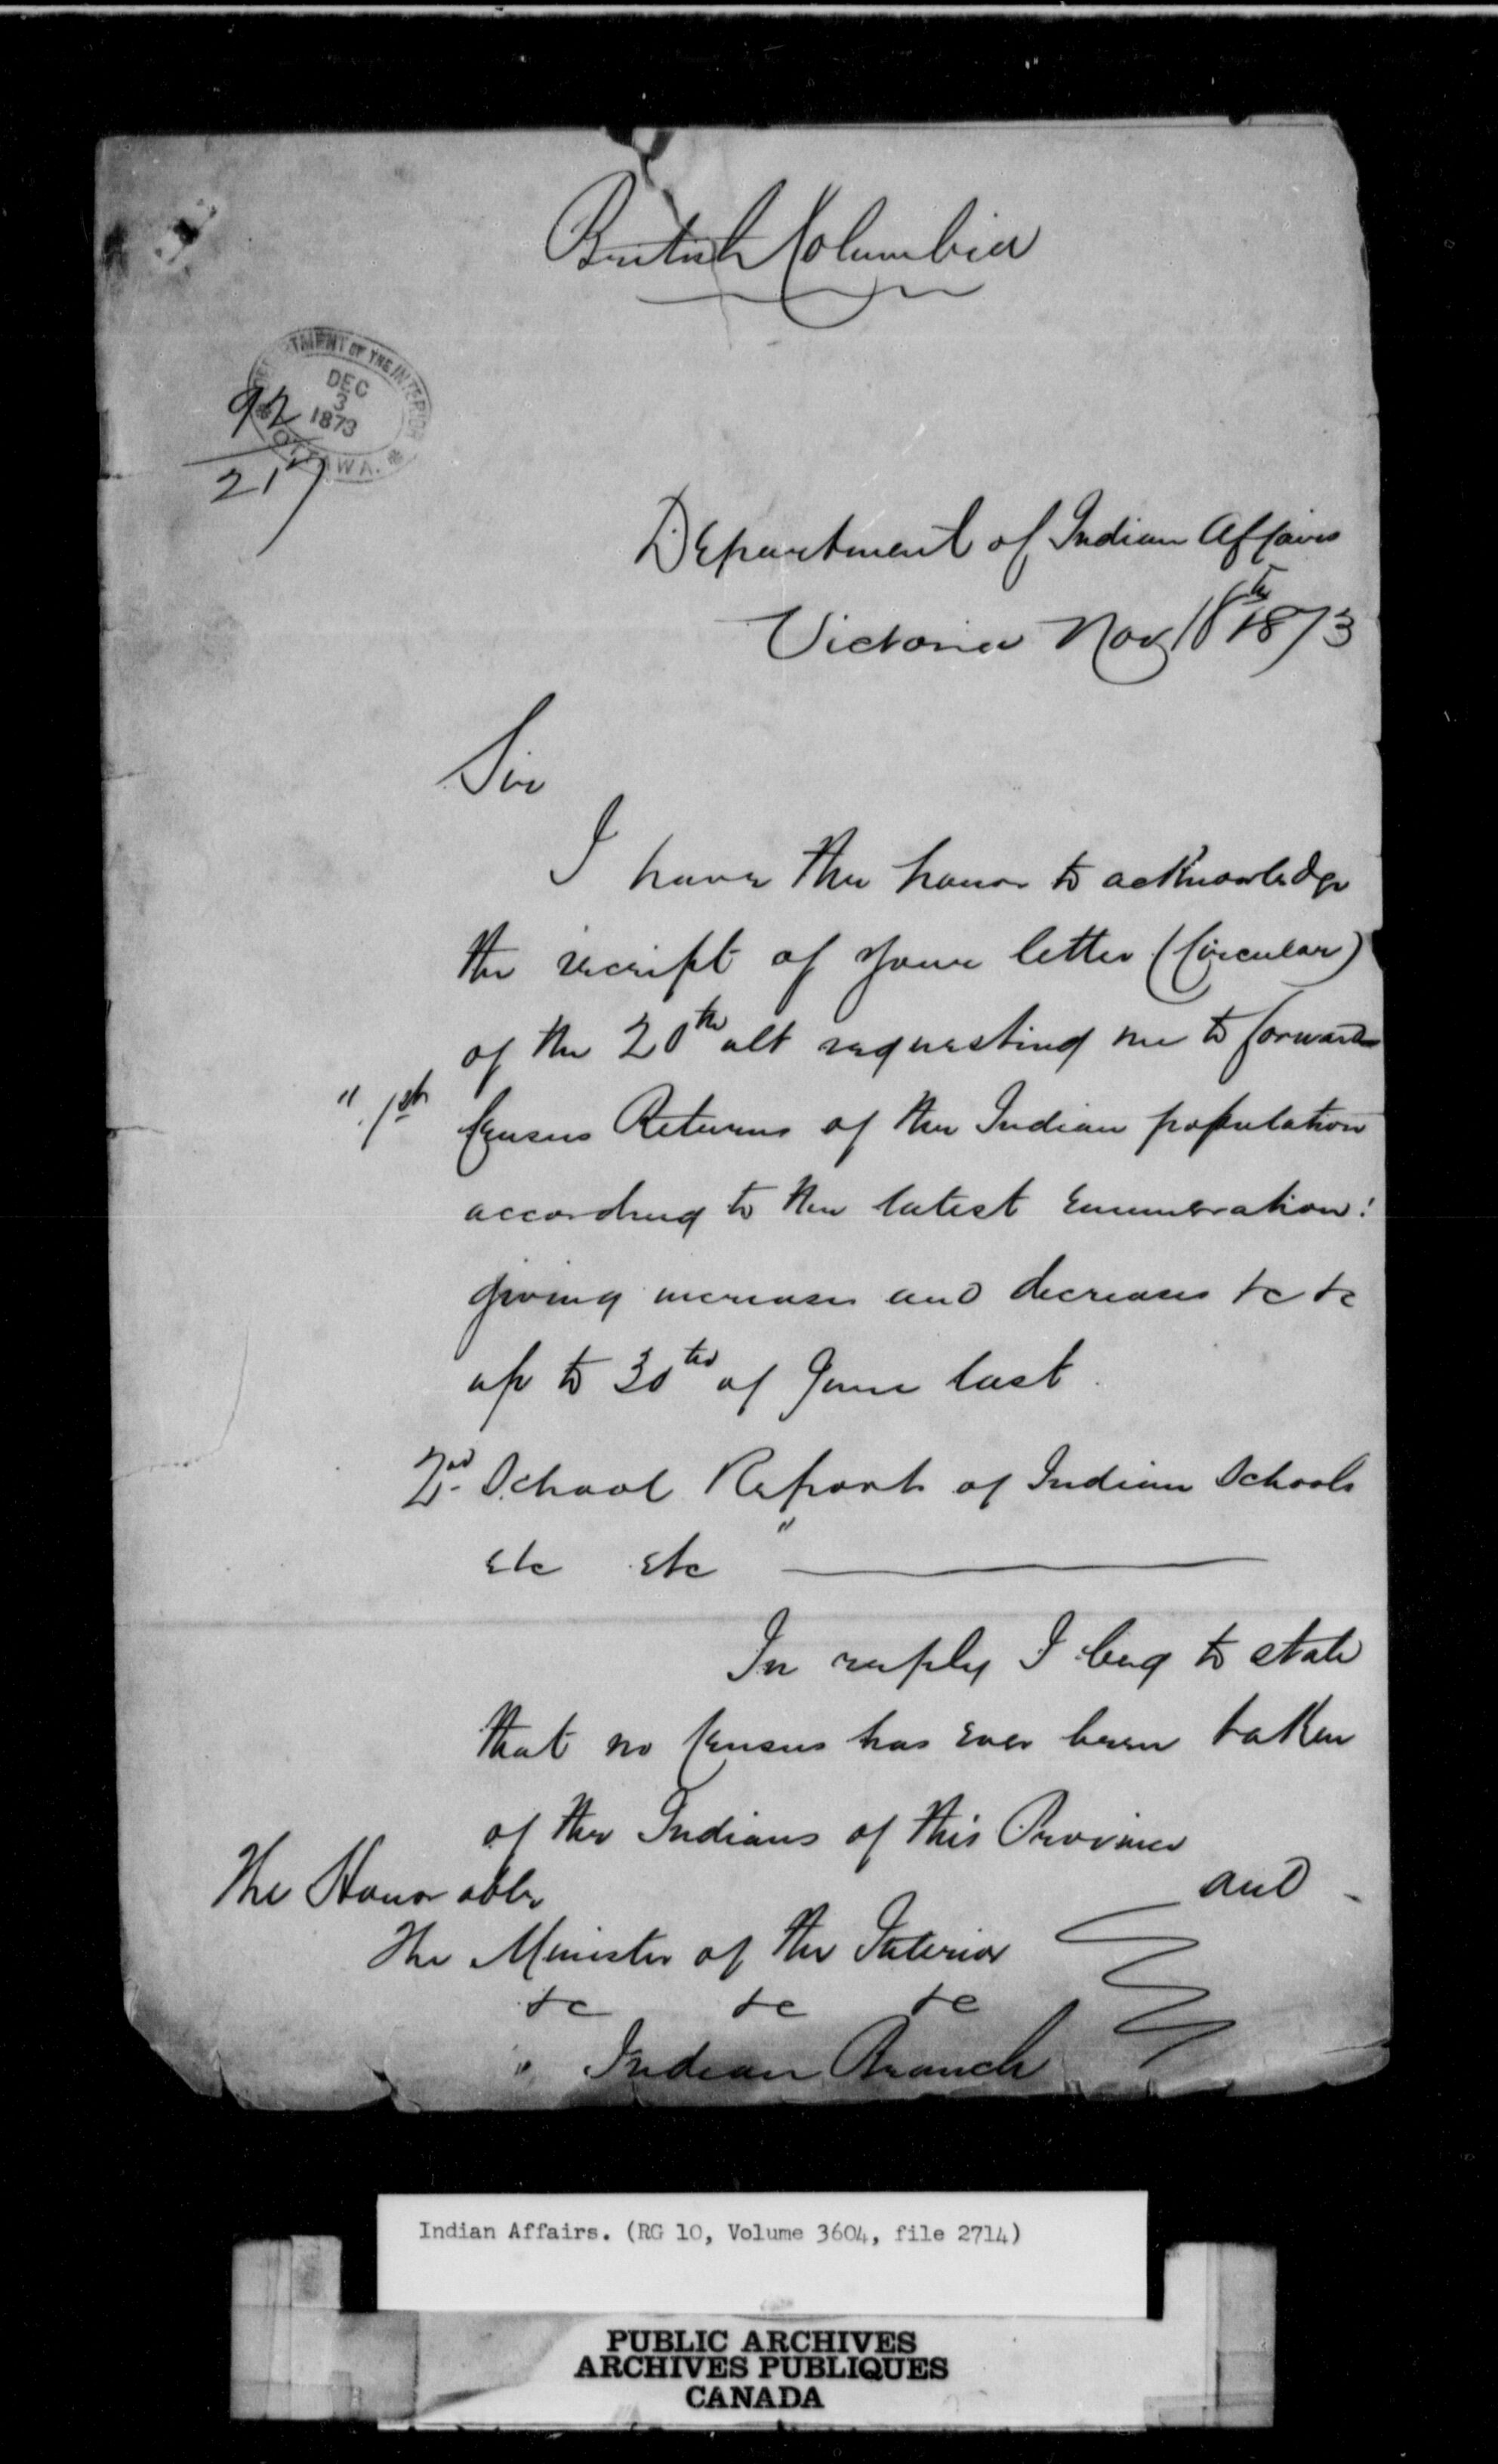 British Columbia
DEPARTMENT OF THE INTERIOR
DEC
3
1873
OTTAWA.
92
217
Department of Indian Affairs
Victoria Nov 18th 1873
Sir
I have the honor to acknowledge
the receipt of your letter (Circular)
of the 20th ult requesting me to forward
" 1st Census Returns of the Indian population
according to the latest Enumeration:
giving increases and decreases &c &c
up to 30th of June last.
2nd School Reports of Indian Schools
etc etc "
In reply I beg to state
that no Census has ever been taken
of the Indians of this Province
and
The Honorable
The Minister of the Interior
&c &c &c
" Indian Branch
Indian Affairs. (RG 10, Volume 3604, file 2714)
PUBLIC ARCHIVES
ARCHIVES PUBLIQUES
CANADA